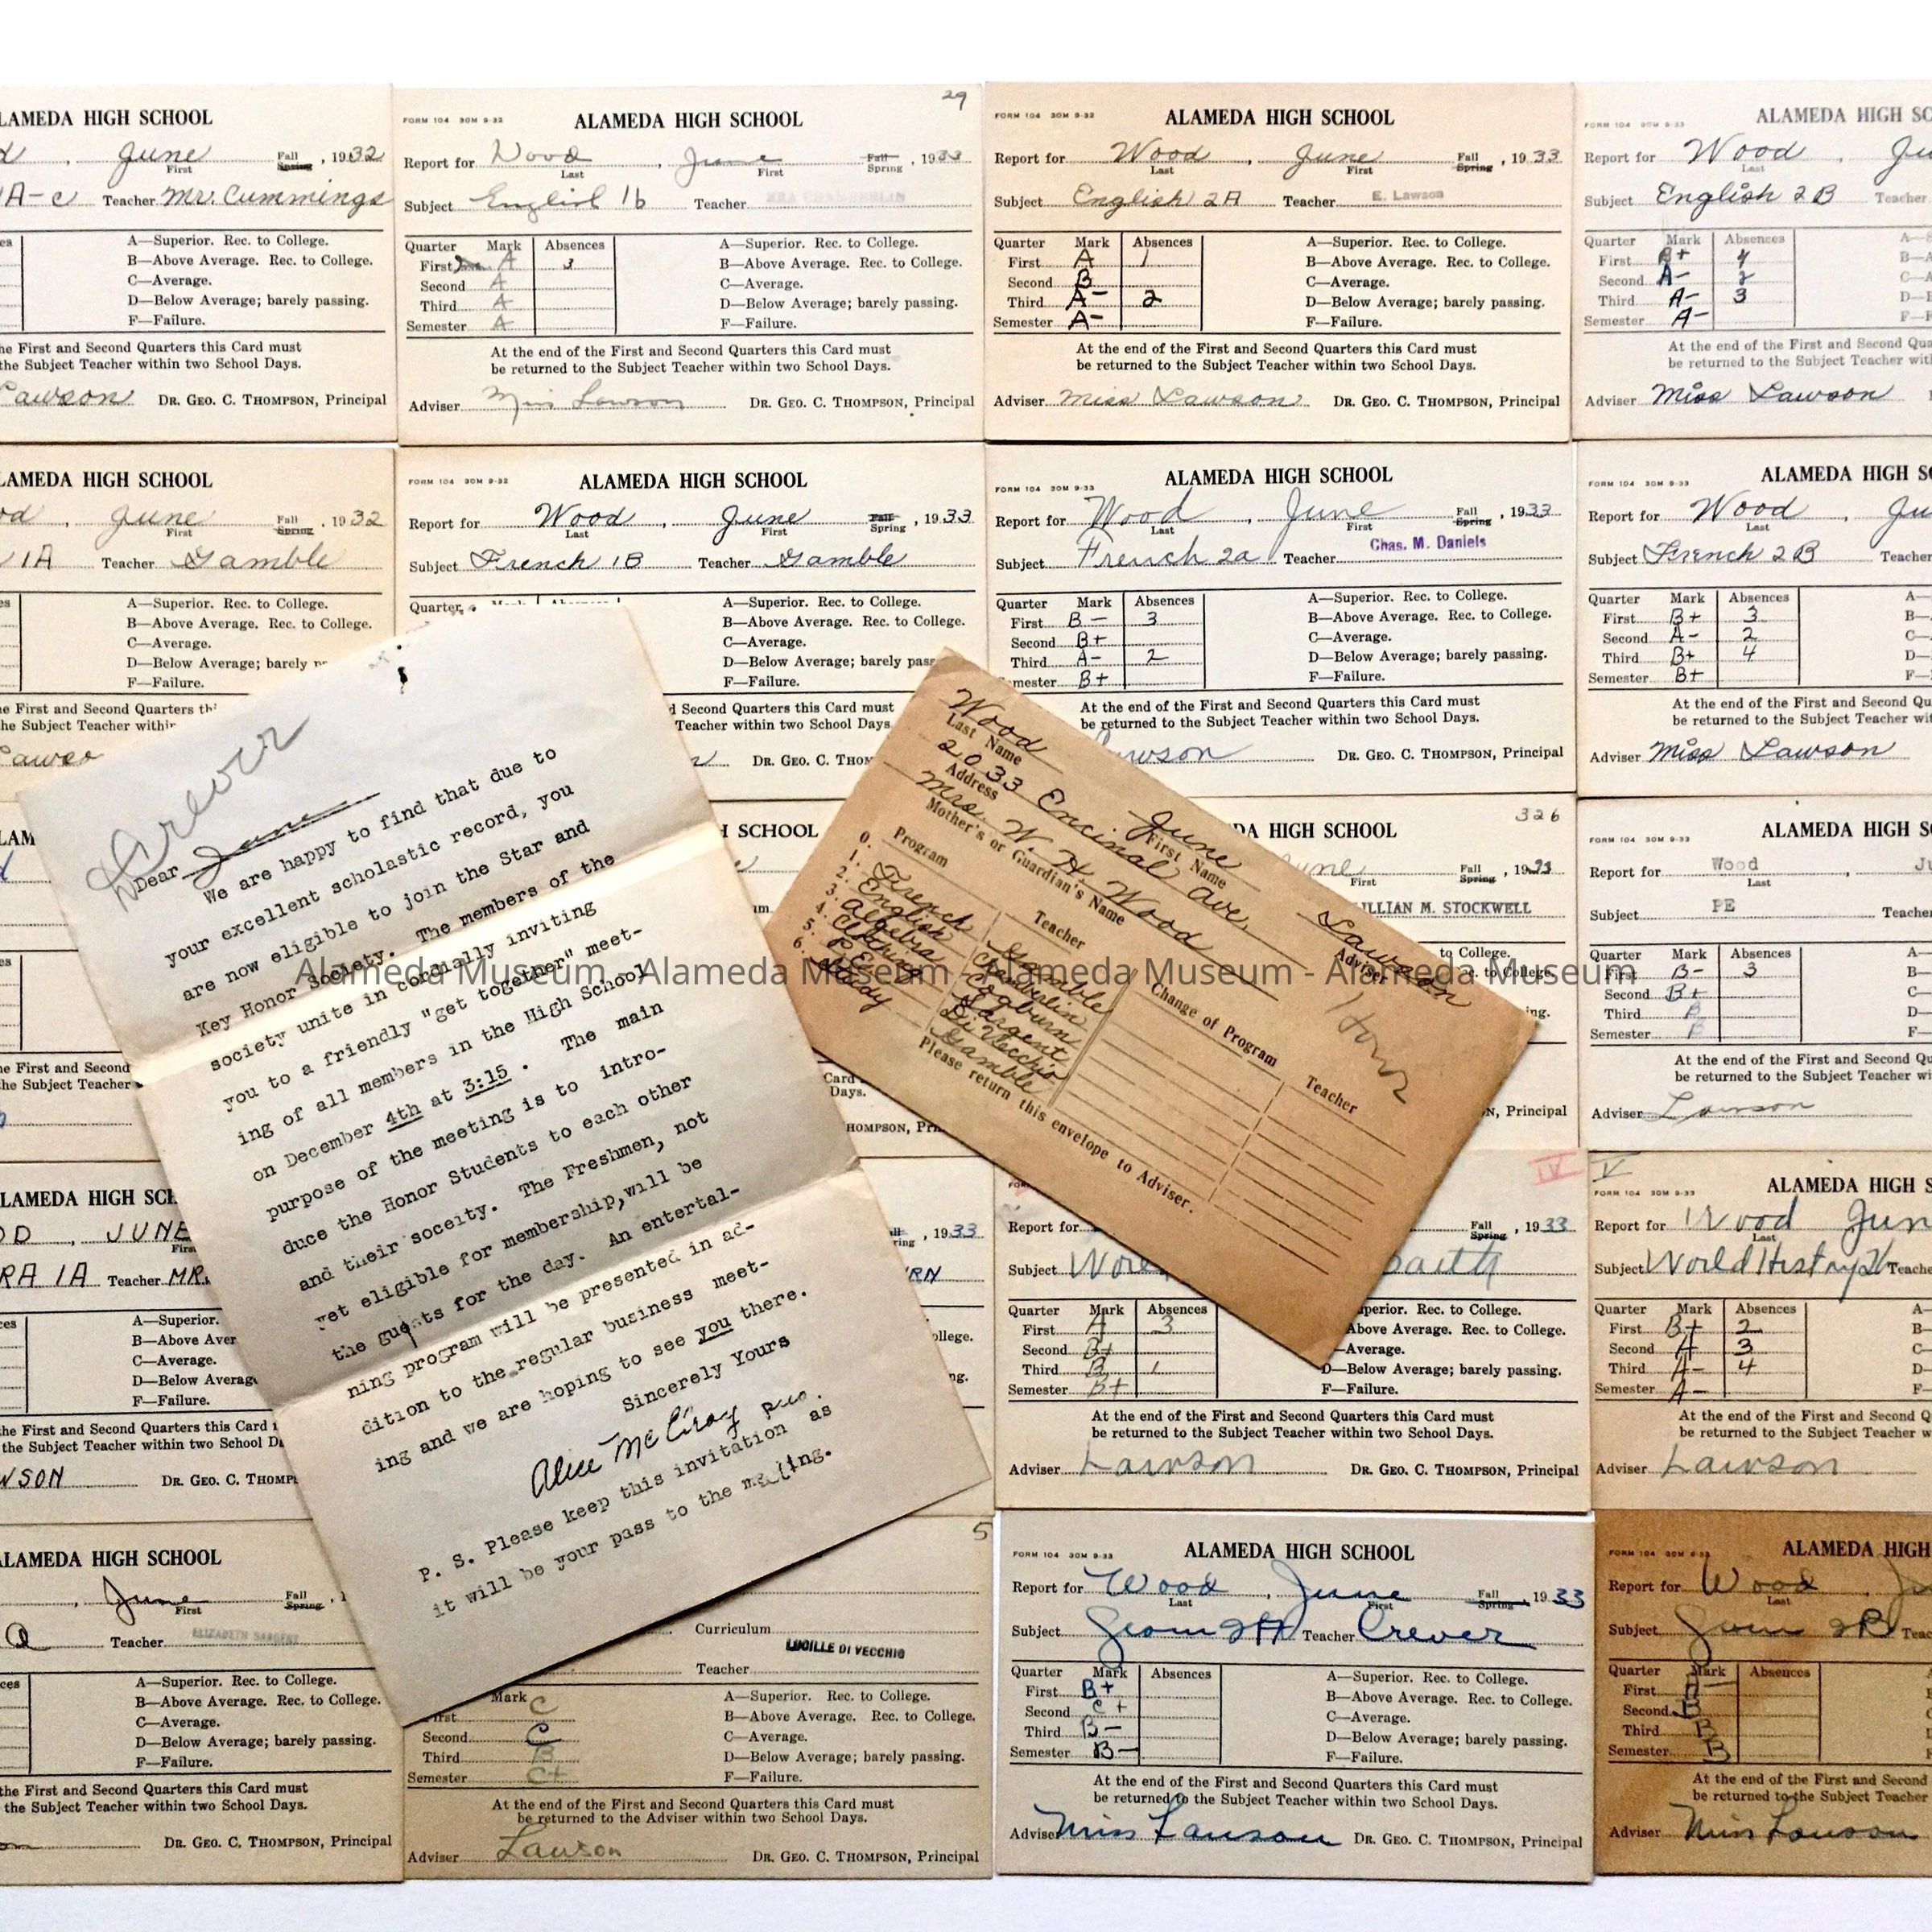 LAMEDA HIGH SCHOOL
June
First
Fall
Spring
, 1932
1A-c Teacher Mr. Cummings
A—Superior. Rec. to College.
B—Above Average. Rec. to College.
C—Average.
D—Below Average; barely passing.
F—Failure.
he First and Second Quarters this Card must
the Subject Teacher within two School Days.
Lawson DR. GEO. C. THOMPSON, Principal
29
FORM 104 30M 9-32
ALAMEDA HIGH SCHOOL
Report for Wood , June Fall Spring , 1933
Last First
Subject English 1b Teacher
Quarter Mark Absences
First A 3
Second A
Third A
Semester A
A—Superior. Rec. to College.
B—Above Average. Rec. to College.
C—Average.
D—Below Average; barely passing.
F—Failure.
At the end of the First and Second Quarters this Card must
be returned to the Subject Teacher within two School Days.
Adviser Miss Lawson DR. GEO. C. THOMPSON, Principal
FORM 104 30M 9-32
ALAMEDA HIGH SCHOOL
Report for Wood , June Fall Spring , 1933
Last First
Subject English 2A Teacher E. Lawson
Quarter Mark Absences
First A 1
Second B
Third A- 2
Semester A-
A—Superior. Rec. to College.
B—Above Average. Rec. to College.
C—Average.
D—Below Average; barely passing.
F—Failure.
At the end of the First and Second Quarters this Card must
be returned to the Subject Teacher within two School Days.
Adviser Miss Lawson DR. GEO. C. THOMPSON, Principal
FORM 104 30M 9-33
ALAMEDA HIGH SC
Report for Wood , Ju
Last
Subject English 2B Teacher
Quarter Mark Absences
First B+ 4
Second A- 2
Third A- 3
Semester A-
At the end of the First and Second Qua
be returned to the Subject Teacher wit
Adviser Miss Lawson
LAMEDA HIGH SCHOOL
od , June Fall Spring , 1932
First
1A Teacher Gamble
A—Superior. Rec. to College.
B—Above Average. Rec. to College.
C—Average.
D—Below Average; barely
F—Failure.
he First and Second Quarters
the Subject Teacher within
FORM 104 30M 9-32
ALAMEDA HIGH SCHOOL
Report for Wood , June Fall Spring , 1933
Last First
Subject French 1B Teacher Gamble
Quarter
A—Superior. Rec. to College.
B—Above Average. Rec. to College.
C—Average.
D—Below Average; barely pass
F—Failure.
d Second Quarters this Card must
Teacher within two School Days
DR. GEO. C. THOM
FORM 104 30M 9-33
ALAMEDA HIGH SCHOOL
Report for Wood , June Fall Spring , 1933
Last First
Subject French 2a Teacher Chas. M. Daniels
Quarter Mark Absences
First B- 3
Second B+
Third A- 2
mester B+
A—Superior. Rec. to College.
B—Above Average. Rec. to College.
C—Average.
D—Below Average; barely passing.
F—Failure.
At the end of the First and Second Quarters this Card must
be returned to the Subject Teacher within two School Days.
awson DR. GEO. C. THOMPSON, Principal
FORM 104 30M 9-33
ALAMEDA HIGH S
Report for Wood , Ju
Last
Subject French 2B Teacher
Quarter Mark Absences
First B+ 3
Second A- 2
Third B+ 4
Semester B+
At the end of the First and Second Qu
be returned to the Subject Teacher wi
Adviser Miss Lawson
Crever
Dear June
We are happy to find that due to
your excellent scholastic record, you
are now eligible to join the Star and
Key Honor Society. The members of the
society unite in cordially inviting
you to a friendly "get together" meet-
ing of all members in the High School
on December 4th at 3:15 . The main
purpose of the meeting is to intro-
duce the Honor Students to each other
and their soceity. The Freshmen, not
yet eligible for membership,will be
the guests for the day. An entertai-
ning program will be presented in ad-
dition to the regular business meet-
ing and we are hoping to see you there.
Sincerely Yours
Alice McElroy pres.
P. S. Please keep this invitation as
it will be your pass to the meeting.
Wood June Lawson
Last Name First Name Adviser
2033 Encinal Ave.
Address
Mrs. W. H. Wood
Mother's or Guardian's Name
Honor
Program Teacher Change of Program Teacher
0.
1. French Gamble
2. English Chamberlin
3. Algebra Cogburn
4. Clothing Sargent
5. P.E. Di Vecchio
6. Study Gamble
Please return this envelope to Adviser.
H SCHOOL
DA HIGH SCHOOL
326
June Fall Spring , 1933
First
LILLIAN M. STOCKWELL
to College.
Rec. to College.
N, Principal
ALAMEDA HIGH S
FORM 104 30M 9-33
Report for Wood Ju
Last
Subject PE Teacher
Quarter Mark Absences
First B- 3
Second B+
Third B
Semester B
At the end of the First and Second Qu
be returned to the Subject Teacher wi
Adviser Lawson
Alameda Museum - Alameda Museum - Alameda Museum - Alameda Museum
LAMEDA HIGH SCH
OD , JUNE
RA 1A Teacher MR.
A—Superior.
B—Above Aver
C—Average.
D—Below Average
F—Failure.
he First and Second Quarters this Card
the Subject Teacher within two School D
WSON DR. GEO. C. THOMP
, 1933
RN
IV
Report for Fall Spring , 1933
Subject Wor
Quarter Mark Absences
First A 3
Second B+
Third B 1
Semester B+
perior. Rec. to College.
Above Average. Rec. to College.
Average.
D—Below Average; barely passing.
F—Failure.
At the end of the First and Second Quarters this Card must
be returned to the Subject Teacher within two School Days.
Adviser Lawson DR. GEO. C. THOMPSON, Principal
V
FORM 104 30M 9-33
ALAMEDA HIGH S
Report for Wood Jun
Last
Subject World History Teache
Quarter Mark Absences
First B+ 2
Second A 3
Third A- 4
Semester A-
At the end of the First and Second Q
be returned to the Subject Teacher w
Adviser Lawson
ALAMEDA HIGH SCHOOL
, June Fall Spring
First
Teacher ELIZABETH SARGENT
A—Superior. Rec. to College.
B—Above Average. Rec. to College.
C—Average.
D—Below Average; barely passing.
F—Failure.
the First and Second Quarters this Card must
the Subject Teacher within two School Days.
DR. GEO. C. THOMPSON, Principal
5
Curriculum
LUCILLE DI VECCHIO
Teacher
Mark
First C
Second C
Third B
Semester C+
A—Superior. Rec. to College.
B—Above Average. Rec. to College.
C—Average.
D—Below Average; barely passing.
F—Failure.
At the end of the First and Second Quarters this Card must
be returned to the Adviser within two School Days.
Adviser Lawson DR. GEO. C. THOMPSON, Principal
FORM 104 30M 9-33
ALAMEDA HIGH SCHOOL
Report for Wood , June Fall Spring , 1933
Last First
Subject Geom 2A Teacher Crever
Quarter Mark Absences
First B+
Second C+
Third B-
Semester B-
A—Superior. Rec. to College.
B—Above Average. Rec. to College.
C—Average.
D—Below Average; barely passing.
F—Failure.
At the end of the First and Second Quarters this Card must
be returned to the Subject Teacher within two School Days.
Adviser Miss Lawson DR. GEO. C. THOMPSON, Principal
FORM 104 30M 9-33
ALAMEDA HIGH
Report for Wood
Last
Subject Geom 2B Teac
Quarter Mark Absences
First A-
Second B
Third B
Semester B
At the end of the First and Second
be returned to the Subject Teacher
Adviser Miss Lawson